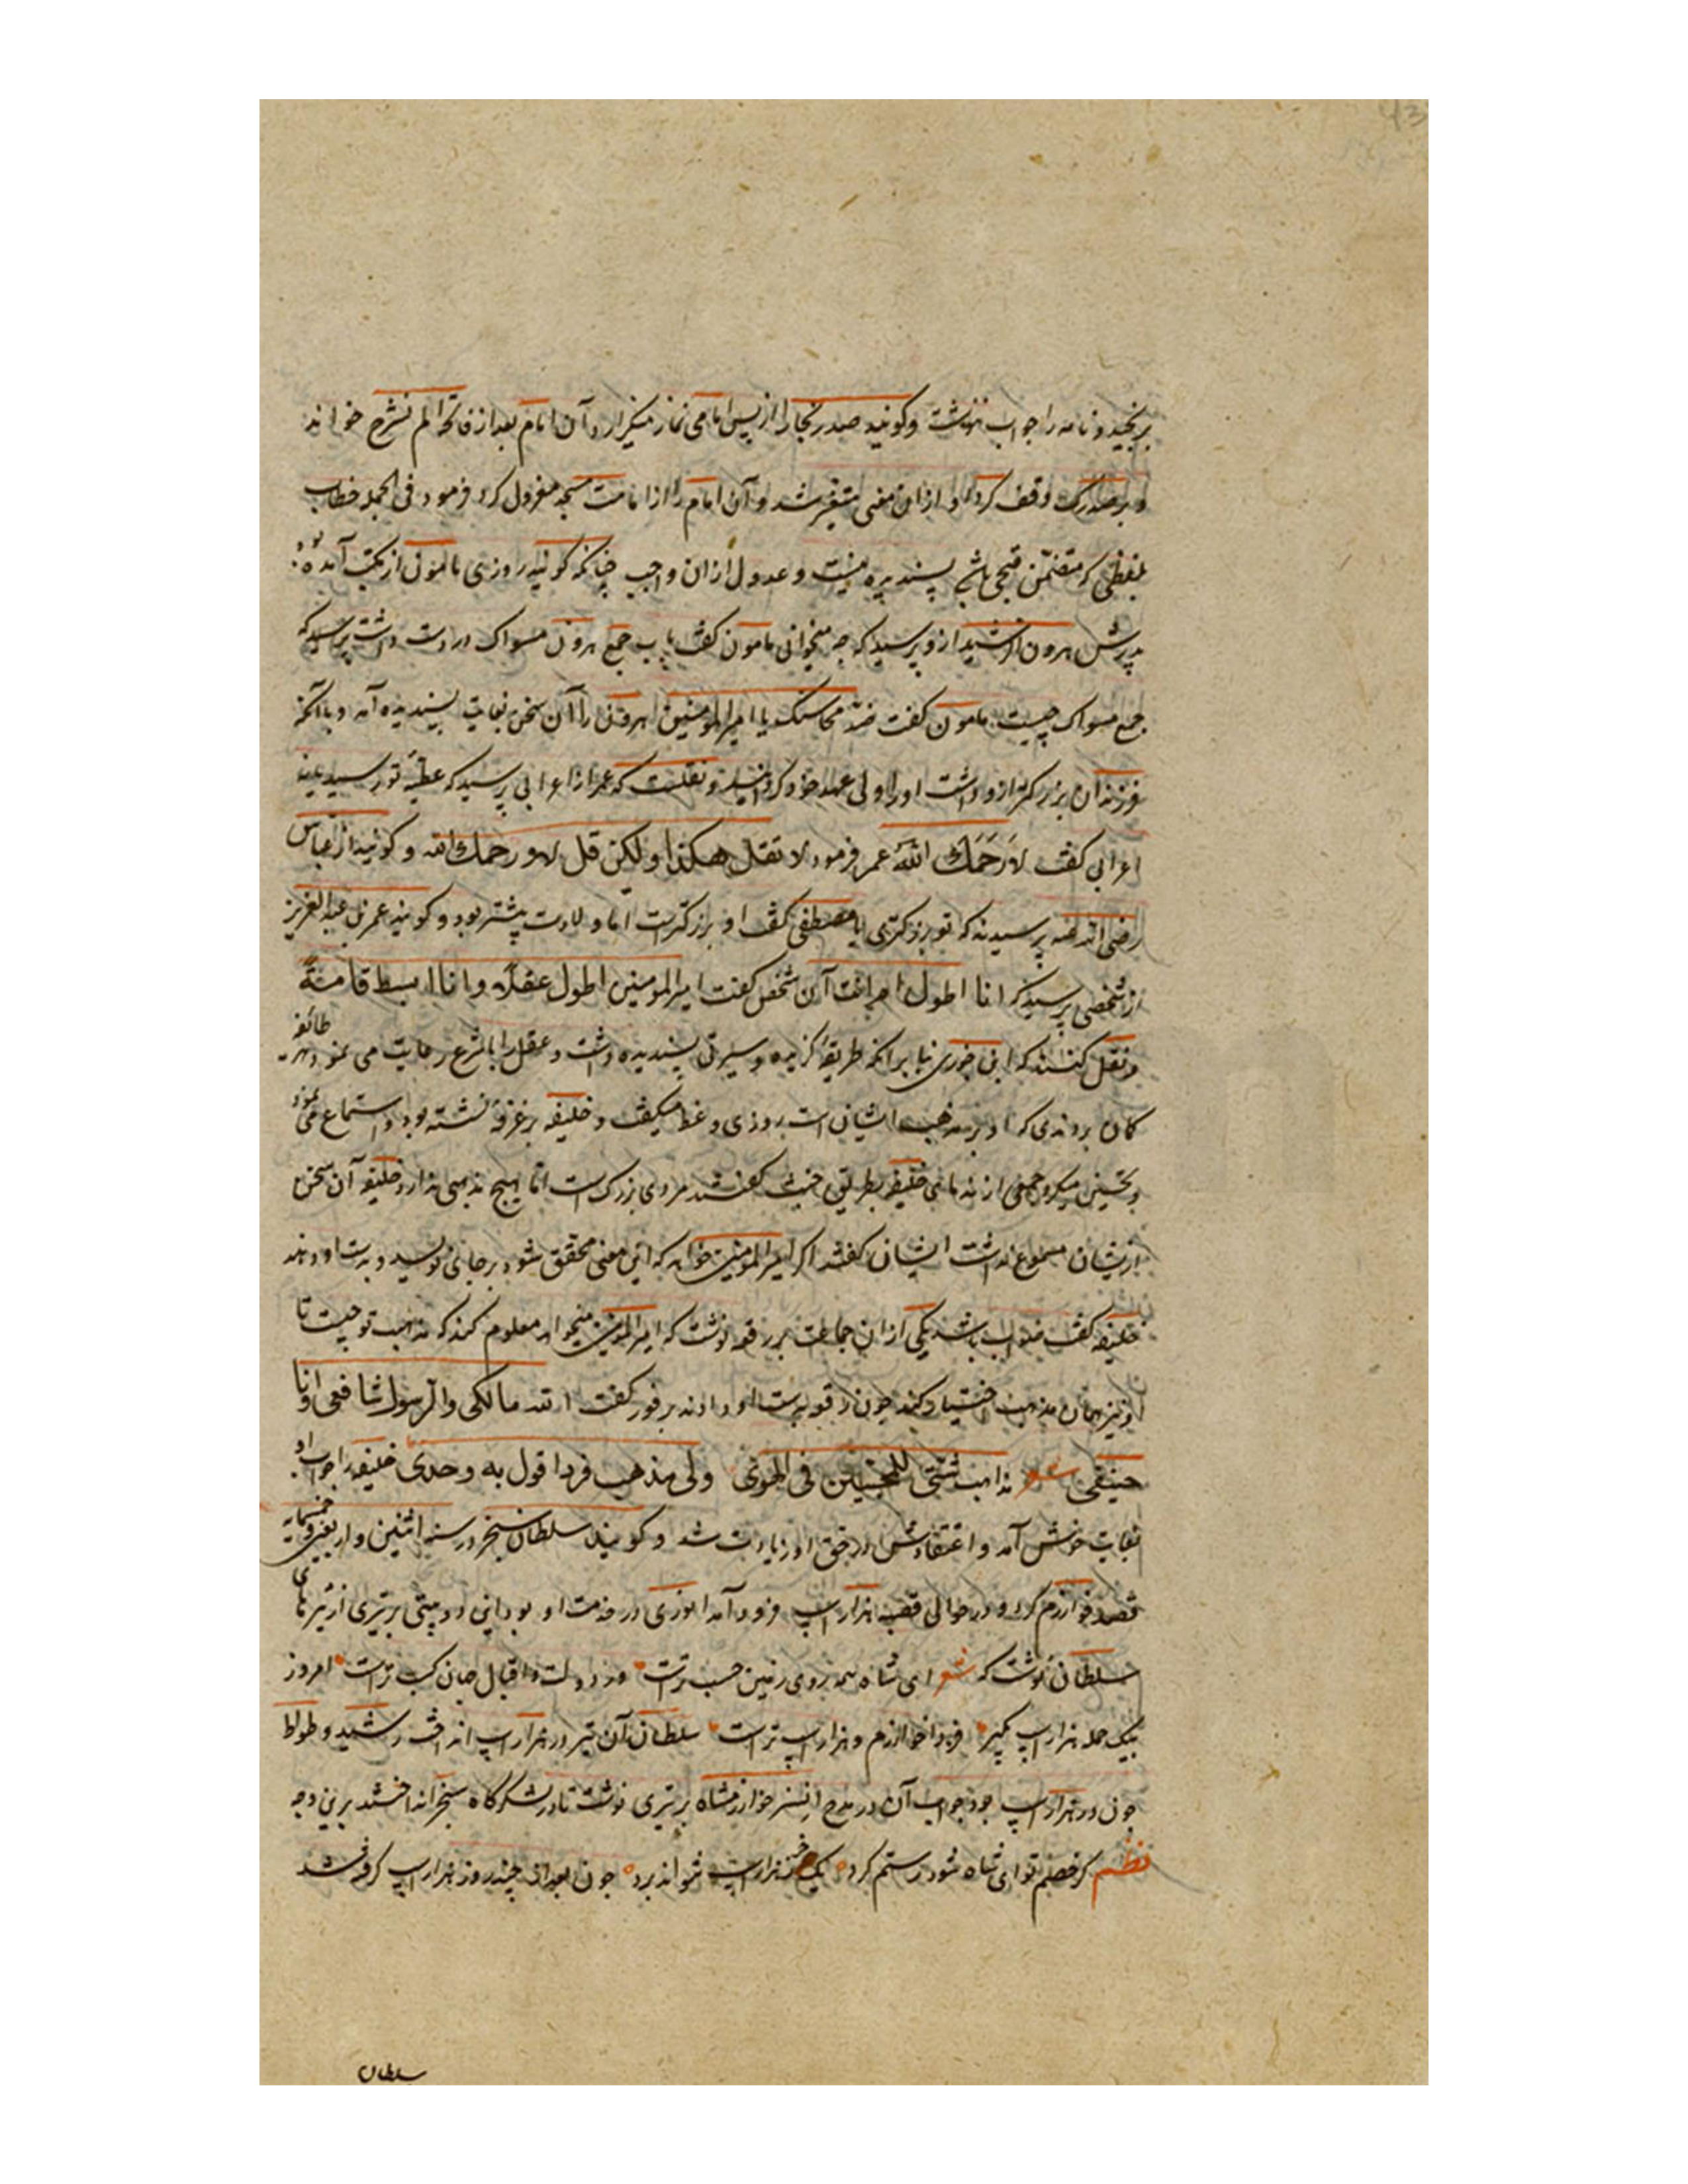 برنجید و نامه را جواب ننوشت و گویند صدر بخارا از پس امامی نماز میگزارد آن امام بعد از فاتحه الم نشرح خواند
و بر صدرک وقف کرد او ازان معنی متغیر شد و آن امام را از امامت مسجد معزول کرد فرمود فی الجمله خطاب
بلفظی که متضمن قبحی باشد پسندیده نیست و عدول ازان واجب چنانکه گویند روزی مامون از مکتب آمده بود
پدرش هرون الرشید ازو پرسید که چه میخوانی مامون گفت باب جمع هرون مسواک در دست داشت پرسید که
جمع مسواک چیست مامون گفت ضد محاسنک یا امیرالمومنین هرون را آن سخن بغایت پسندیده آمد و با آنکه
فرزندان بزرکتر ازو داشت او را ولی عهد خود گردانید و نقلست که عمر از اعرابی پرسید که عطیه تو رسید یا نه
اعرابی گفت لا رَحَمَك اللهُ عمر فرمود لا تقل هكذا ولكن قل لا و رحمك الله و گویند از عباس
رضی الله عنه پرسیدند که تو بزرکتری یا مصطفی گفت او بزرکترست اما ولادت من پیشتر بود و گویند عمر بن عبدالعزیز
از شخصی پرسید که انا اطول ام انت آن شخص گفت امیرالمومنین اطول عقلاً وانا ابسط قامةً
و نقل کنند که ابن جوزی بنا برانکه طریقهٔ گزیده و سیرتی پسندیده داشت و عقل را با شرع رعایت می نمود هر طائفه
کمان بردندی که او بر مذهب ایشان است روزی وعظ میگفت و خلیفه بر غرفهٔ نشسته بود و استماع می نمود
و تحسین میکرد جمعی از ندمای خلیفه بطریق خبث گفتند مردی بزرک است اما هیچ مذهبی ندارد خلیفه آن سخن
ازیشان مسموع نداشت ایشان گفتند اکر امیرالمومنین خواهد که این معنی محقق شود بر جائی نویسد و بدست او دهند
خلیفه گفت صواب باشد یکی ازان جماعت بر رقعه نوشت که امیرالمومنین میخواهد معلوم کند که مذهب تو چیست تا
او نیز همان مذهب اختیار کند چون رقعه بدست او دادند بر فور گفت الله مالکی والرسول شافعی وانا
حنیفی شعر مذاهب شتی للمحبین فی الهوی ولی مذهب فرد اقول به وحدی خلیفه را جواب او
بغایت خوش آمد و اعتقادش در حق او زیادت شد و گویند سلطان سنجر در سنه اثنین واربعین وخمسمایه
قصد خوارزم کرد و در حوالی قصبه هزاراسپ فرود آمد انوری در خدمت او بود این دو بیتی بر تیری از تیرهای
سلطان نوشت که شعر ای شاه همه روی زمین حسب تراست وز دولت و اقبال جهان کسب تراست امروز
بیک حمله هزاراسپ بگیر فردا خوارزم و هزار اسپ تراست سلطان آن تیر در هزاراسپ انداخت رشید وطواط
چون در هزاراسپ بود جواب آن در مدح اتسز خوارزمشاه بر تیری نوشت تا در لشکرگاه سنجر انداختند برین وجه
نظم گر خصم تو ای شاه شود رستم گرد یک خر ز هزاراسپ نتواند برد چون بعد از چند روز هزاراسپ گرفته شد
سلطان